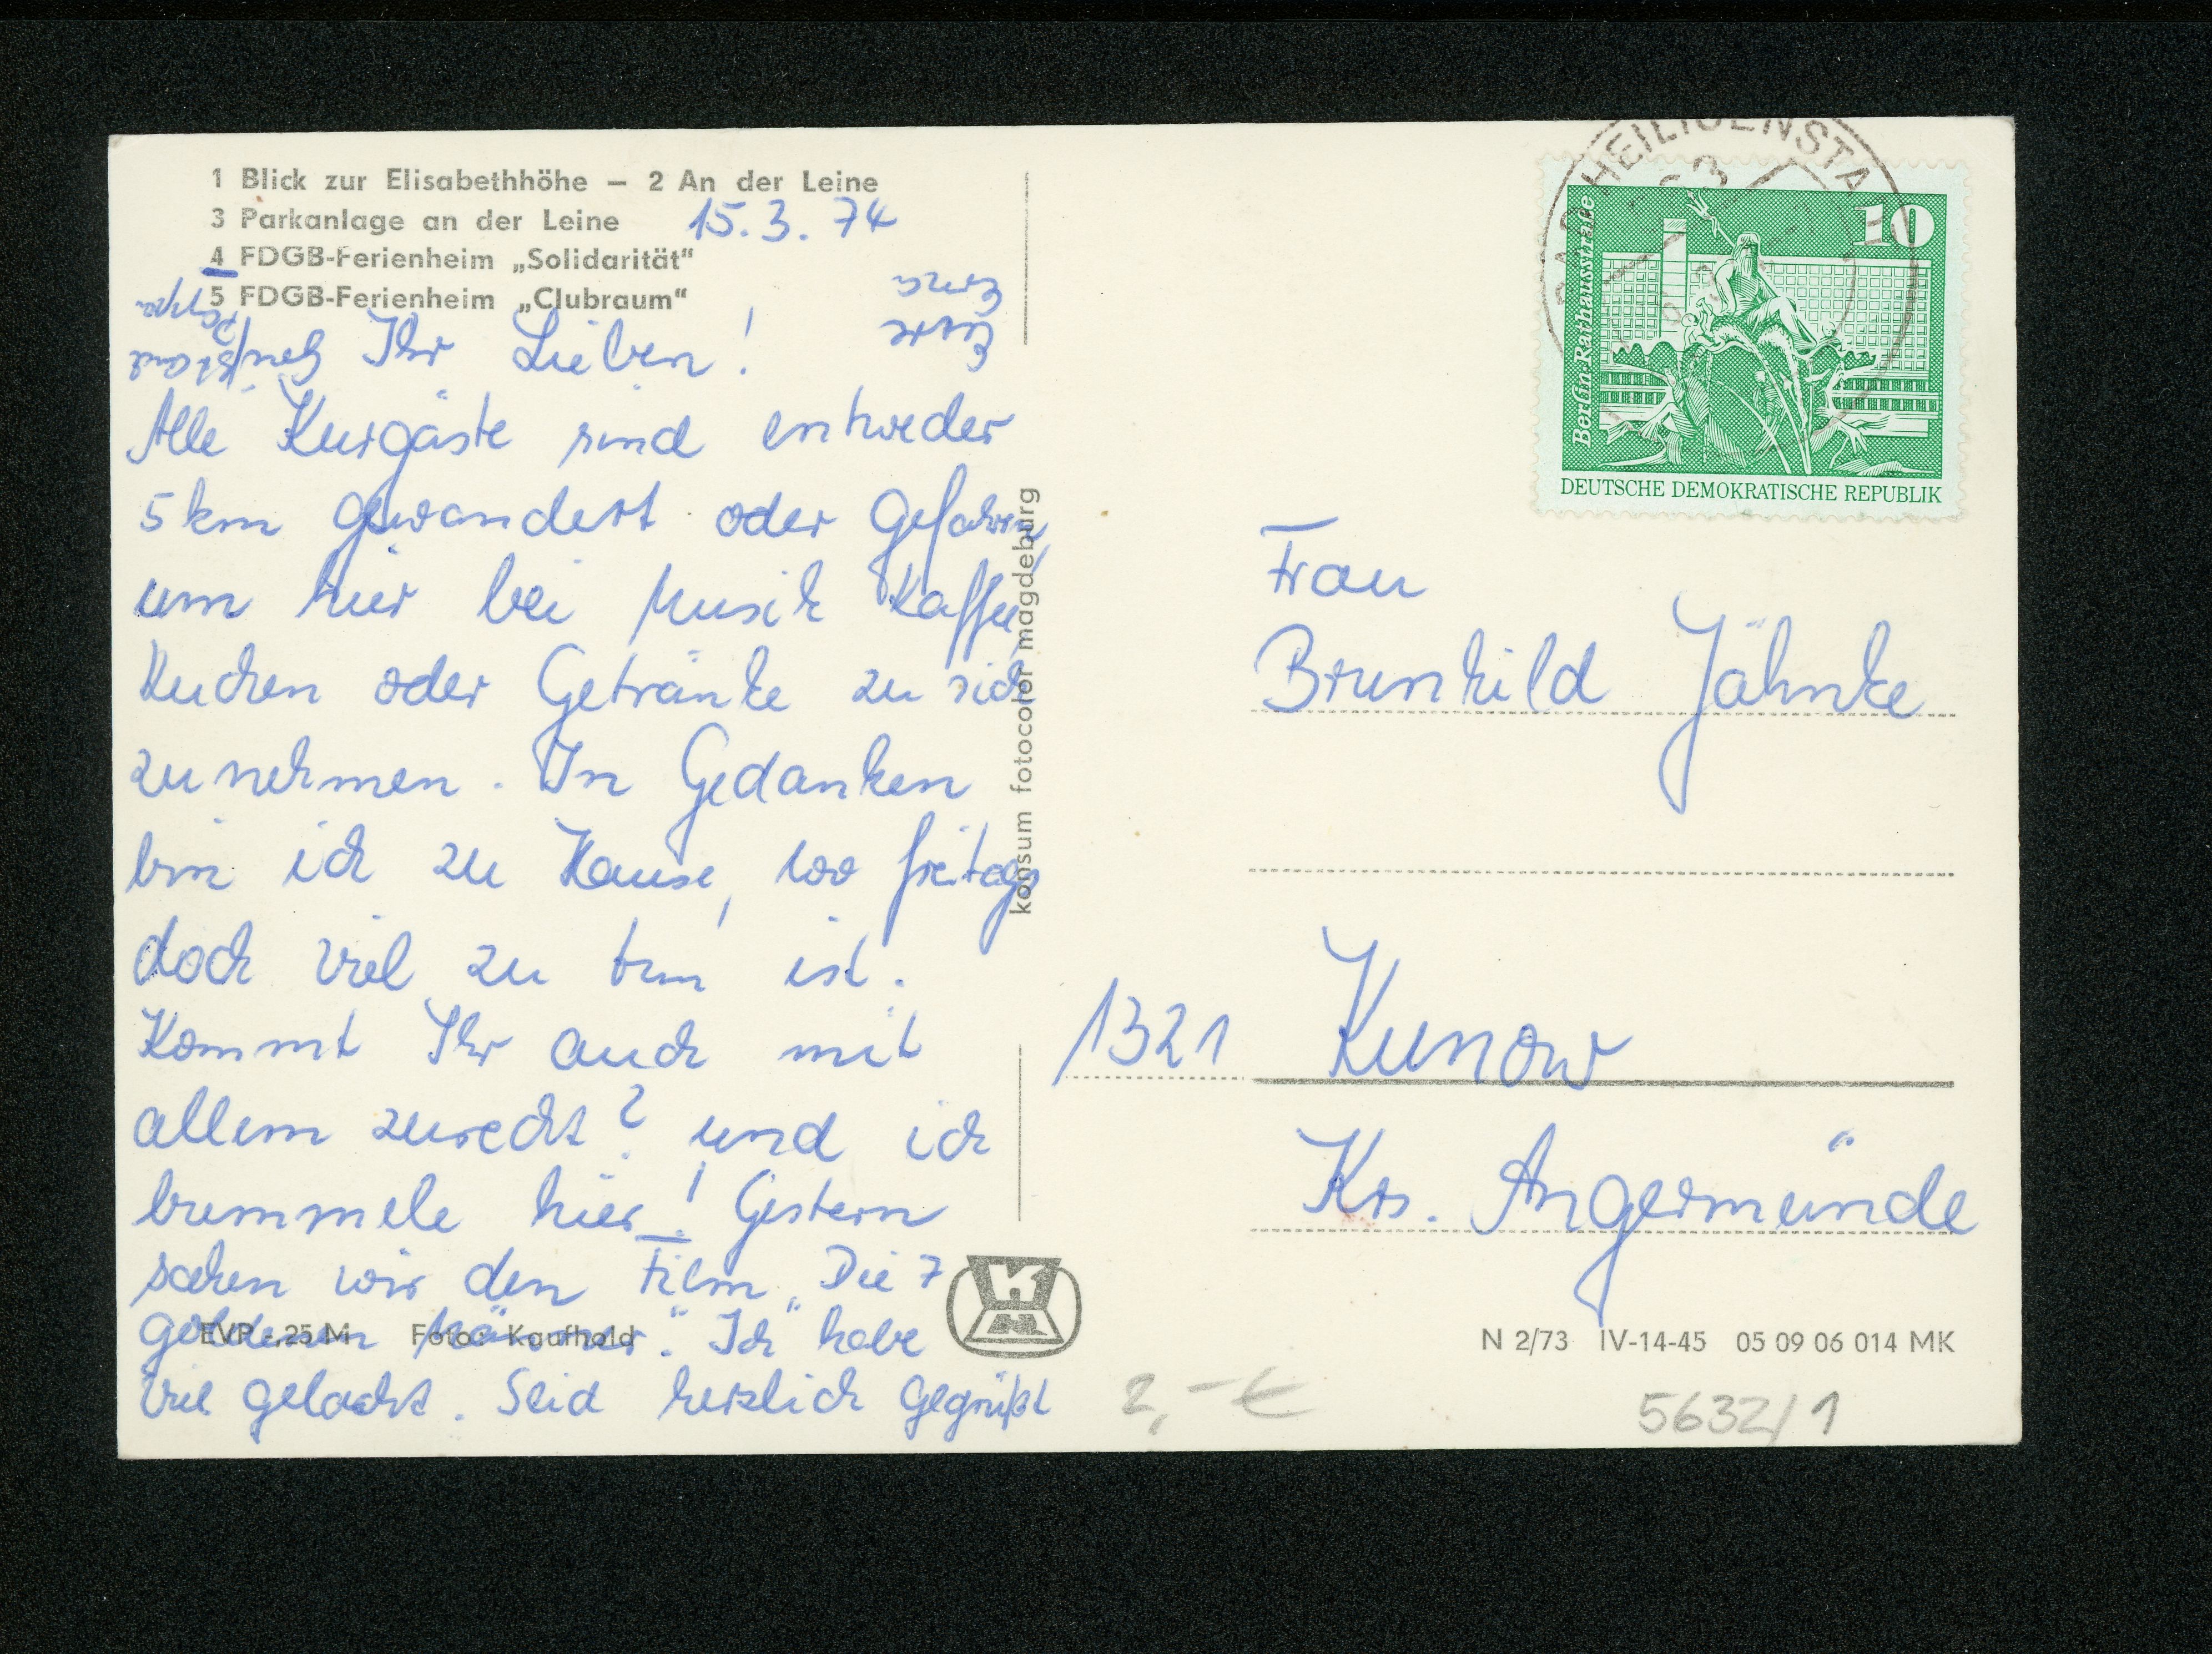 1 Blick zur Elisabethhöhe – 2 An der Leine
3 Parkanlage an der Leine
15. 3. 74
4 FDGB-Ferienheim „Solidarität“
5 FDGB-Ferienheim „Clubraum“
Ihr Lieben!
Alle Kurgäste sind entweder
5 km gewandert oder gefahren,
um hier bei Musik Kaffee
Kuchen oder Getränke zu sich
zu nehmen. In Gedanken
bin ich zu Hause, wo freitags
doch viel zu tun ist.
Kommt Ihr auch mit
allem zurecht? und ich
bummele hier! Gestern
sahen wir den Film „Die 7
goldenen Männer“. Ich habe
viel gelacht. Seid herzlich gegrüßt
Eure
EVP -,25 M Foto: Kaufhold
konsum fotocolor magdeburg
HEILIGENSTA
10
Berlin, Rathausstraße
DEUTSCHE DEMOKRATISCHE REPUBLIK
Frau
Brunhild Jähnke
1321 Kunow
Krs. Angermünde
N 2/73 IV-14-45 05 09 06 014 MK
2,- €
5632/1